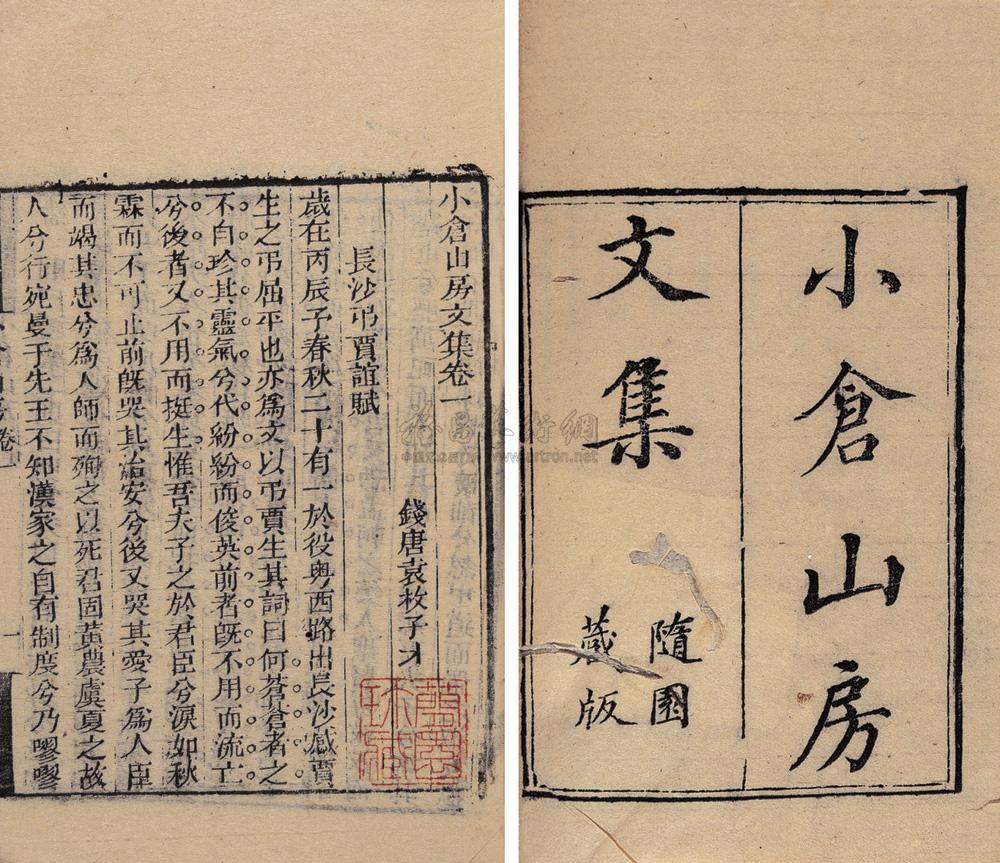 小倉山房
文集
隨園
藏版
小倉山房文集卷一
錢唐袁枚子才
長沙弔賈誼賦
歲在丙辰予春秋二十有一於役粤西路出長沙感賈
生之弔屈平也亦爲文以弔賈生其詞曰何蒼蒼者之
不自珍其靈氣兮代紛紛而俊英前者旣不用而流亡
兮後者又不用而挺生惟吾夫子之於君臣兮淚如秋
霖而不可止前旣哭其治安兮後又哭其愛子爲人臣
而竭其忠兮爲人師而殉之以死君固黃農虞夏之故
人兮行宛曼于先王不知漢家之自有制度兮乃嘐嘐
卷一
一